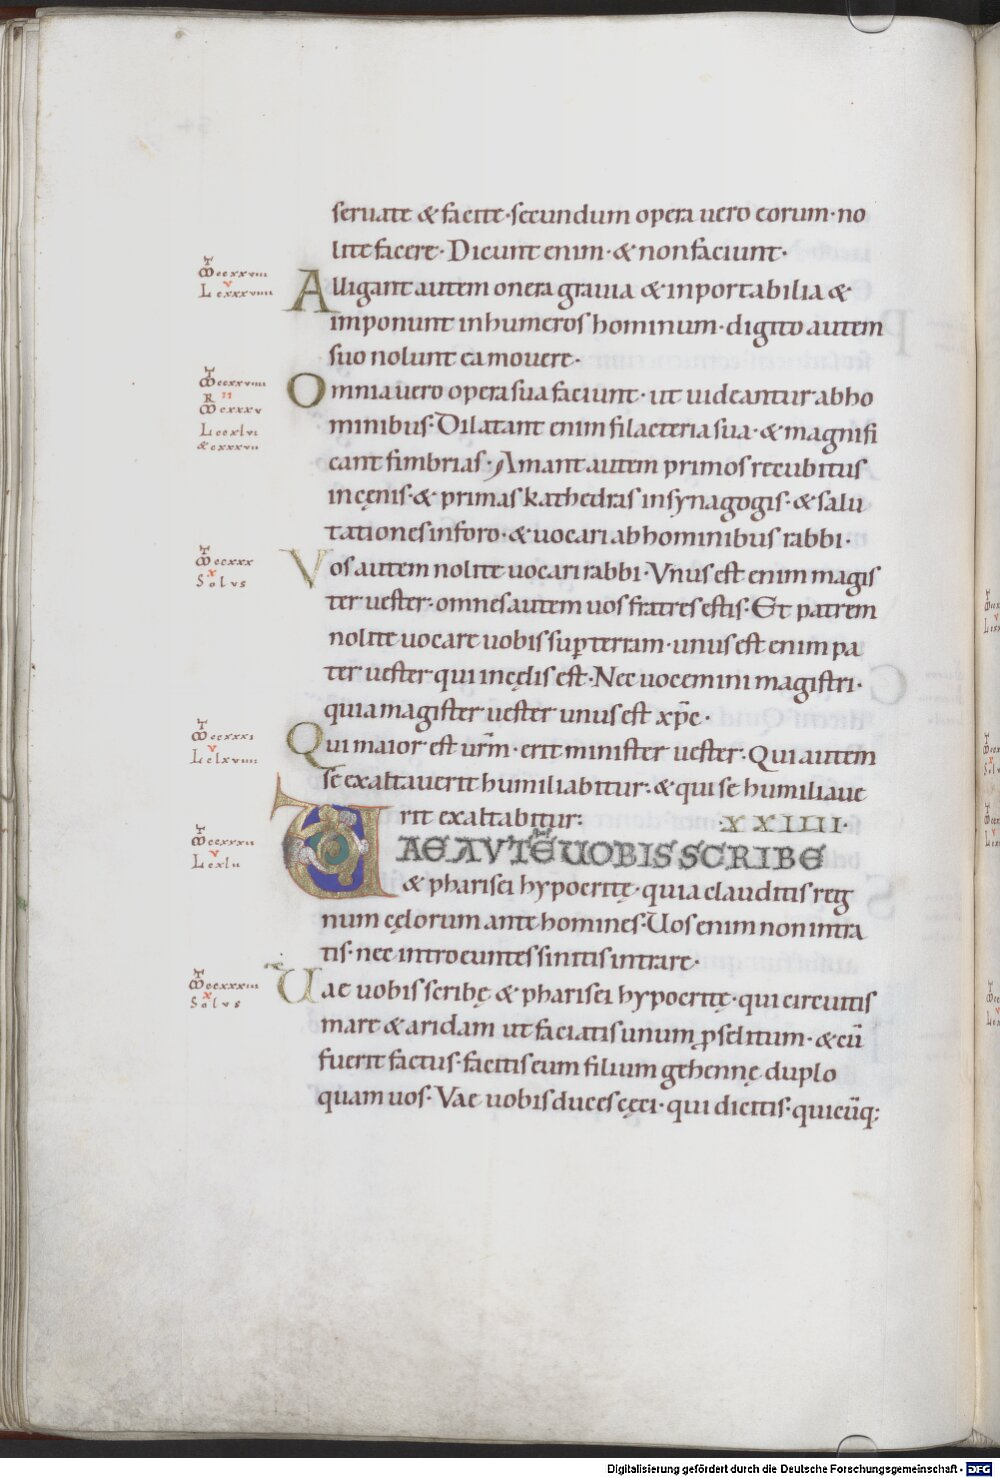 seruate & facite · secundum opera uero eorum · no
lite facere · Dicunt enim · & non faciunt ·
Alligant autem onera grauia & inportabilia &
imponunt in humeros hominum · digito autem
suo nolunt ea mouere ·
Omnia uero opera sua faciunt · ut uideantur ab ho
minibus · Dilatant enim filacteria sua · & magnifi
cant fimbrias · Amant autem primos recubitus
in cęnis · & primas kathedras in synagogis · & salu
tationes in foro · & uocari ab hominibus rabbi ·
Vos autem nolite uocari rabbi · Vnus est enim magis
ter uester · omnes autem uos fratres estis · Et patrem
nolite uocare uobis sup̄ terram · unus est enim pa
ter uester qui in cęlis est · Nec uocemini magistri ·
quia magister uester unus est xp̄c ·
Qui maior est ur̄m · erit minister uester · Qui autem
se exaltauerit humiliabitur · & qui se humiliaue
rit exaltabitur :
· XXIIII ·
UAE AVTĒ UOBIS SCRIBE
& pharisei hypocritę · quia clauditis reg
num cęlorum ante homines · Uos enim non intra
tis · nec introeuntes sinitis intrare ·
Uae uobis scribę & pharisei hypocritę · qui circuitis
mare & aridam ut faciatis unum p̱selitum · & cū
fuerit factus · facitis eum filium gehennę duplo
quam uos · Vae uobis duces cęci · qui dicitis · quicūq;
Solus
Solus
Digitalisierung gefördert durch die Deutsche Forschungsgemeinschaft - DFG